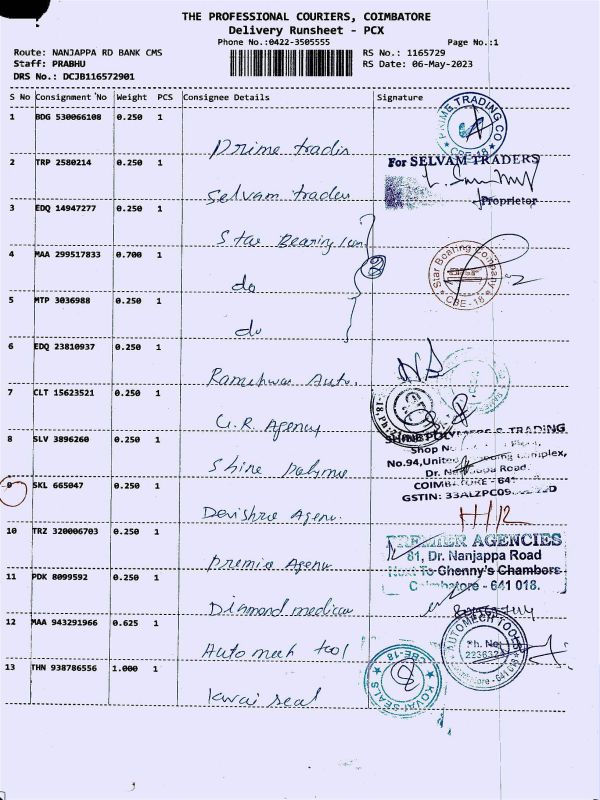 THE PROFESSIONAL COURIERS, COIMBATORE
Delivery Runsheet - PCX
Phone No.:0422-3505555 Page No.:1
Route: NANJAPPA RD BANK CMS RS No.: 1165729
Staff: PRABHU RS Date: 06-May-2023
DRS No.: DCJB116572901
S No Consignment No Weight PCS Consignee Details Signature
1 BDG 530066108 0.250 1
Prime tradin
PRIME TRADING CO
CBE-18
2 TRP 2580214 0.250 1
Selvam trader
For SELVAM TRADERS
Proprietor
3 EDQ 14947277 0.250 1
Star Bearing
4 MAA 299517833 0.700 1
do
Star Bearing Company
CBE-18
5 MTP 3036988 0.250 1
do
6 EDQ 23810937 0.250 1
Rameshwar Auto.
7 CLT 15623521 0.250 1
U.R. Agency
8 SLV 3896260 0.250 1
Shine
TRADING
Shop No
No.94, United
Dr. Nanjappa Road
9 SKL 665047 0.250 1
Devishree Agen.
10 TRZ 320006703 0.250 1
Premier Agen
PREMIER AGENCIES
81, Dr. Nanjappa Road
Next To Chenny's Chambers
Coimbatore - 641 018.
11 PDK 8099592 0.250 1
Diamond medical
12 MAA 943291966 0.625 1
Auto mech tool
AUTOMECH TOOLS
Ph. No
13 THN 938786556 1.000 1
Kovai seal
KOVAI SEALS
CBE-18